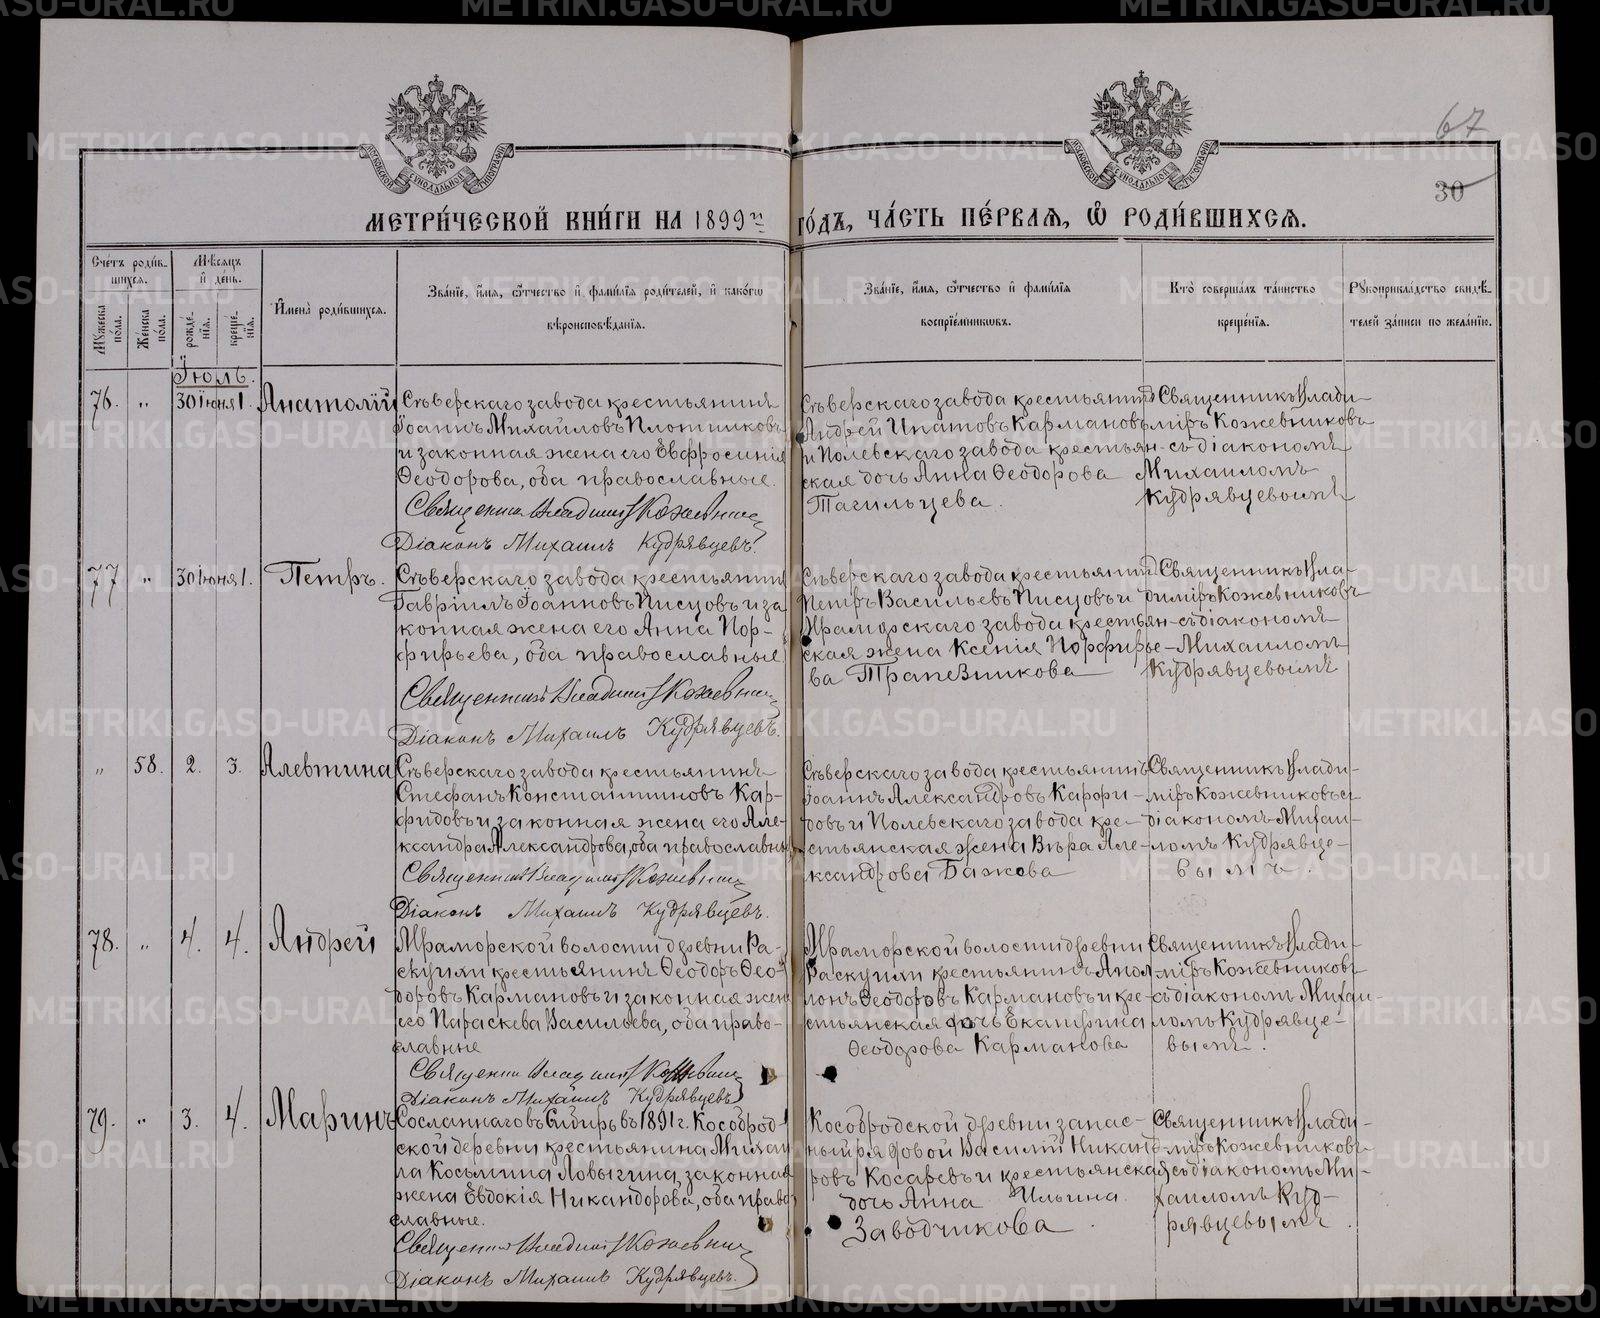 67
30
МЕТРИ́ЧЕСКОЙ КНИ́ГИ НА 1899й ГО́ДЪ, ЧА́СТЬ ПЕ́РВАЯ, Ѡ РОДИ́ВШИХСЯ.
Сче́тъ роди́в-
шихся.
Му́жеска по́ла.
Же́нска по́ла.
Мѣ́сяцъ
и де́нь.
рожде́-
нія.
креще́-
нія.
Имена̀ роди́вшихся.
Зва́ніе, и́мя, о́тчество и фами́лія роди́телей, и како́гѡ
вѣроисповѣ́данія.
Зва́ніе, и́мя, о́тчество и фами́лія
воспріе́мниковъ.
Кто̀ соверша́лъ та́инство
креще́нія.
Рукоприкла́дство свидѣ́-
телей за́писи по жела́нію.
Іюль.
76. „ 30 Іюня 1. Анатолій
Сѣверскаго завода крестьянинъ
Іоаннъ Михайловъ Плотниковъ
и законная жена его Евфросинія
Ѳеодорова, оба православные.
Священникъ Владимір Кожевник
Діаконъ Михаилъ Кудрявцевъ.
Сѣверскаго завода крестьянинъ
Андрей Ипатовъ Кармановъ
и Полевскаго завода крестьян-
ская дочь Анна Ѳеодорова
Тагильцева.
Священникъ Влади-
міръ Кожевниковъ
съ діакономъ
Михаиломъ
Кудрявцевымъ
77 „ 30 Іюня 1. Петръ.
Сѣверскаго завода крестьянинъ
Гавріилъ Іоанновъ Писцовъ и за
конная жена его Анна Пор-
фирьева, оба православные
Священникъ Владимір Кожевник
Діаконъ Михаилъ Кудрявцевъ.
Сѣверскаго завода крестьянинъ
Петръ Васильевъ Писцовъ и
Мраморскаго завода крестьян-
ская жена Ксенія Порфирье-
ва Трапезникова
Священникъ Вла-
диміръ Кожевниковъ
съ діакономъ
Михаиломъ
Кудрявцевымъ
„ 58. 2. 3. Алевтина
Сѣверскаго завода крестьянинъ
Стефанъ Константиновъ Кар-
фидовъ и законная жена его Але-
ксандра Александрова, оба православны
Священник Владимір Кожевник
Діаконъ Михаилъ Кудрявцевъ.
Сѣверскаго завода крестьянинъ
Іоаннъ Александровъ Карфи-
довъ и Полевскаго завода кре-
стьянская жена Вѣра Але-
ксандрова Бажова
Священникъ Влади-
міръ Кожевниковъ съ
діакономъ Михаи-
ломъ Кудрявце-
вымъ.
78. „ 4. 4. Андрей
Мраморской волости деревни Ра-
скуихи крестьянинъ Ѳеодоръ Ѳео-
доровъ Кармановъ и законная жен
его Параскева Васильева, оба право-
славные
Священник Владимір Кожевник
Діаконъ Михаилъ Кудрявцевъ
Мраморской волости деревни
Раскуихи крестьянинъ Апол-
лонъ Ѳеодоровъ Кармановъ и кре-
стьянская дочь Екатерина
Ѳеодорова Карманова
Священникъ Влади-
міръ Кожевниковъ
съ діакономъ Михаи-
ломъ Кудрявце-
вымъ.
79. „ 3. 4. Маринъ
Сосланнаго въ Сибирь въ 1891 г. Кособрод-
ской деревни крестьянина Михаи
ла Косьмина Ловыгина, законная
жена Евдокія Никандорова, оба право
славные.
Священник Владимір Кожевник
Діаконъ Михаилъ Кудрявцевъ.
Кособродской деревни запас-
ный рядовой Василій Никанд-
ровъ Косаревъ и крестьянская
дочь Анна Ильина
Заводчикова
Священникъ Влади-
міръ Кожевниковъ
съ діакономъ Ми-
хаиломъ Куд-
рявцевымъ.
METRIKI.GASO-URAL.RU